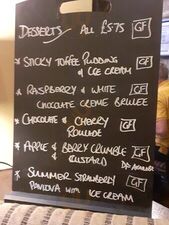 DESSERTS ALL £5.75 GF
* STICKY TOFFEE PUDDING GF
& ICE CREAM
* RASPBERRY & WHITE GF
CHOCOLATE CREME BRULEE
* CHOCOLATE & CHERRY GF
ROULADE
* APPLE & BERRY CRUMBLE GF
& CUSTARD
* SUMMER STRAWBERRY GF
PAVLOVA WITH ICE CREAM